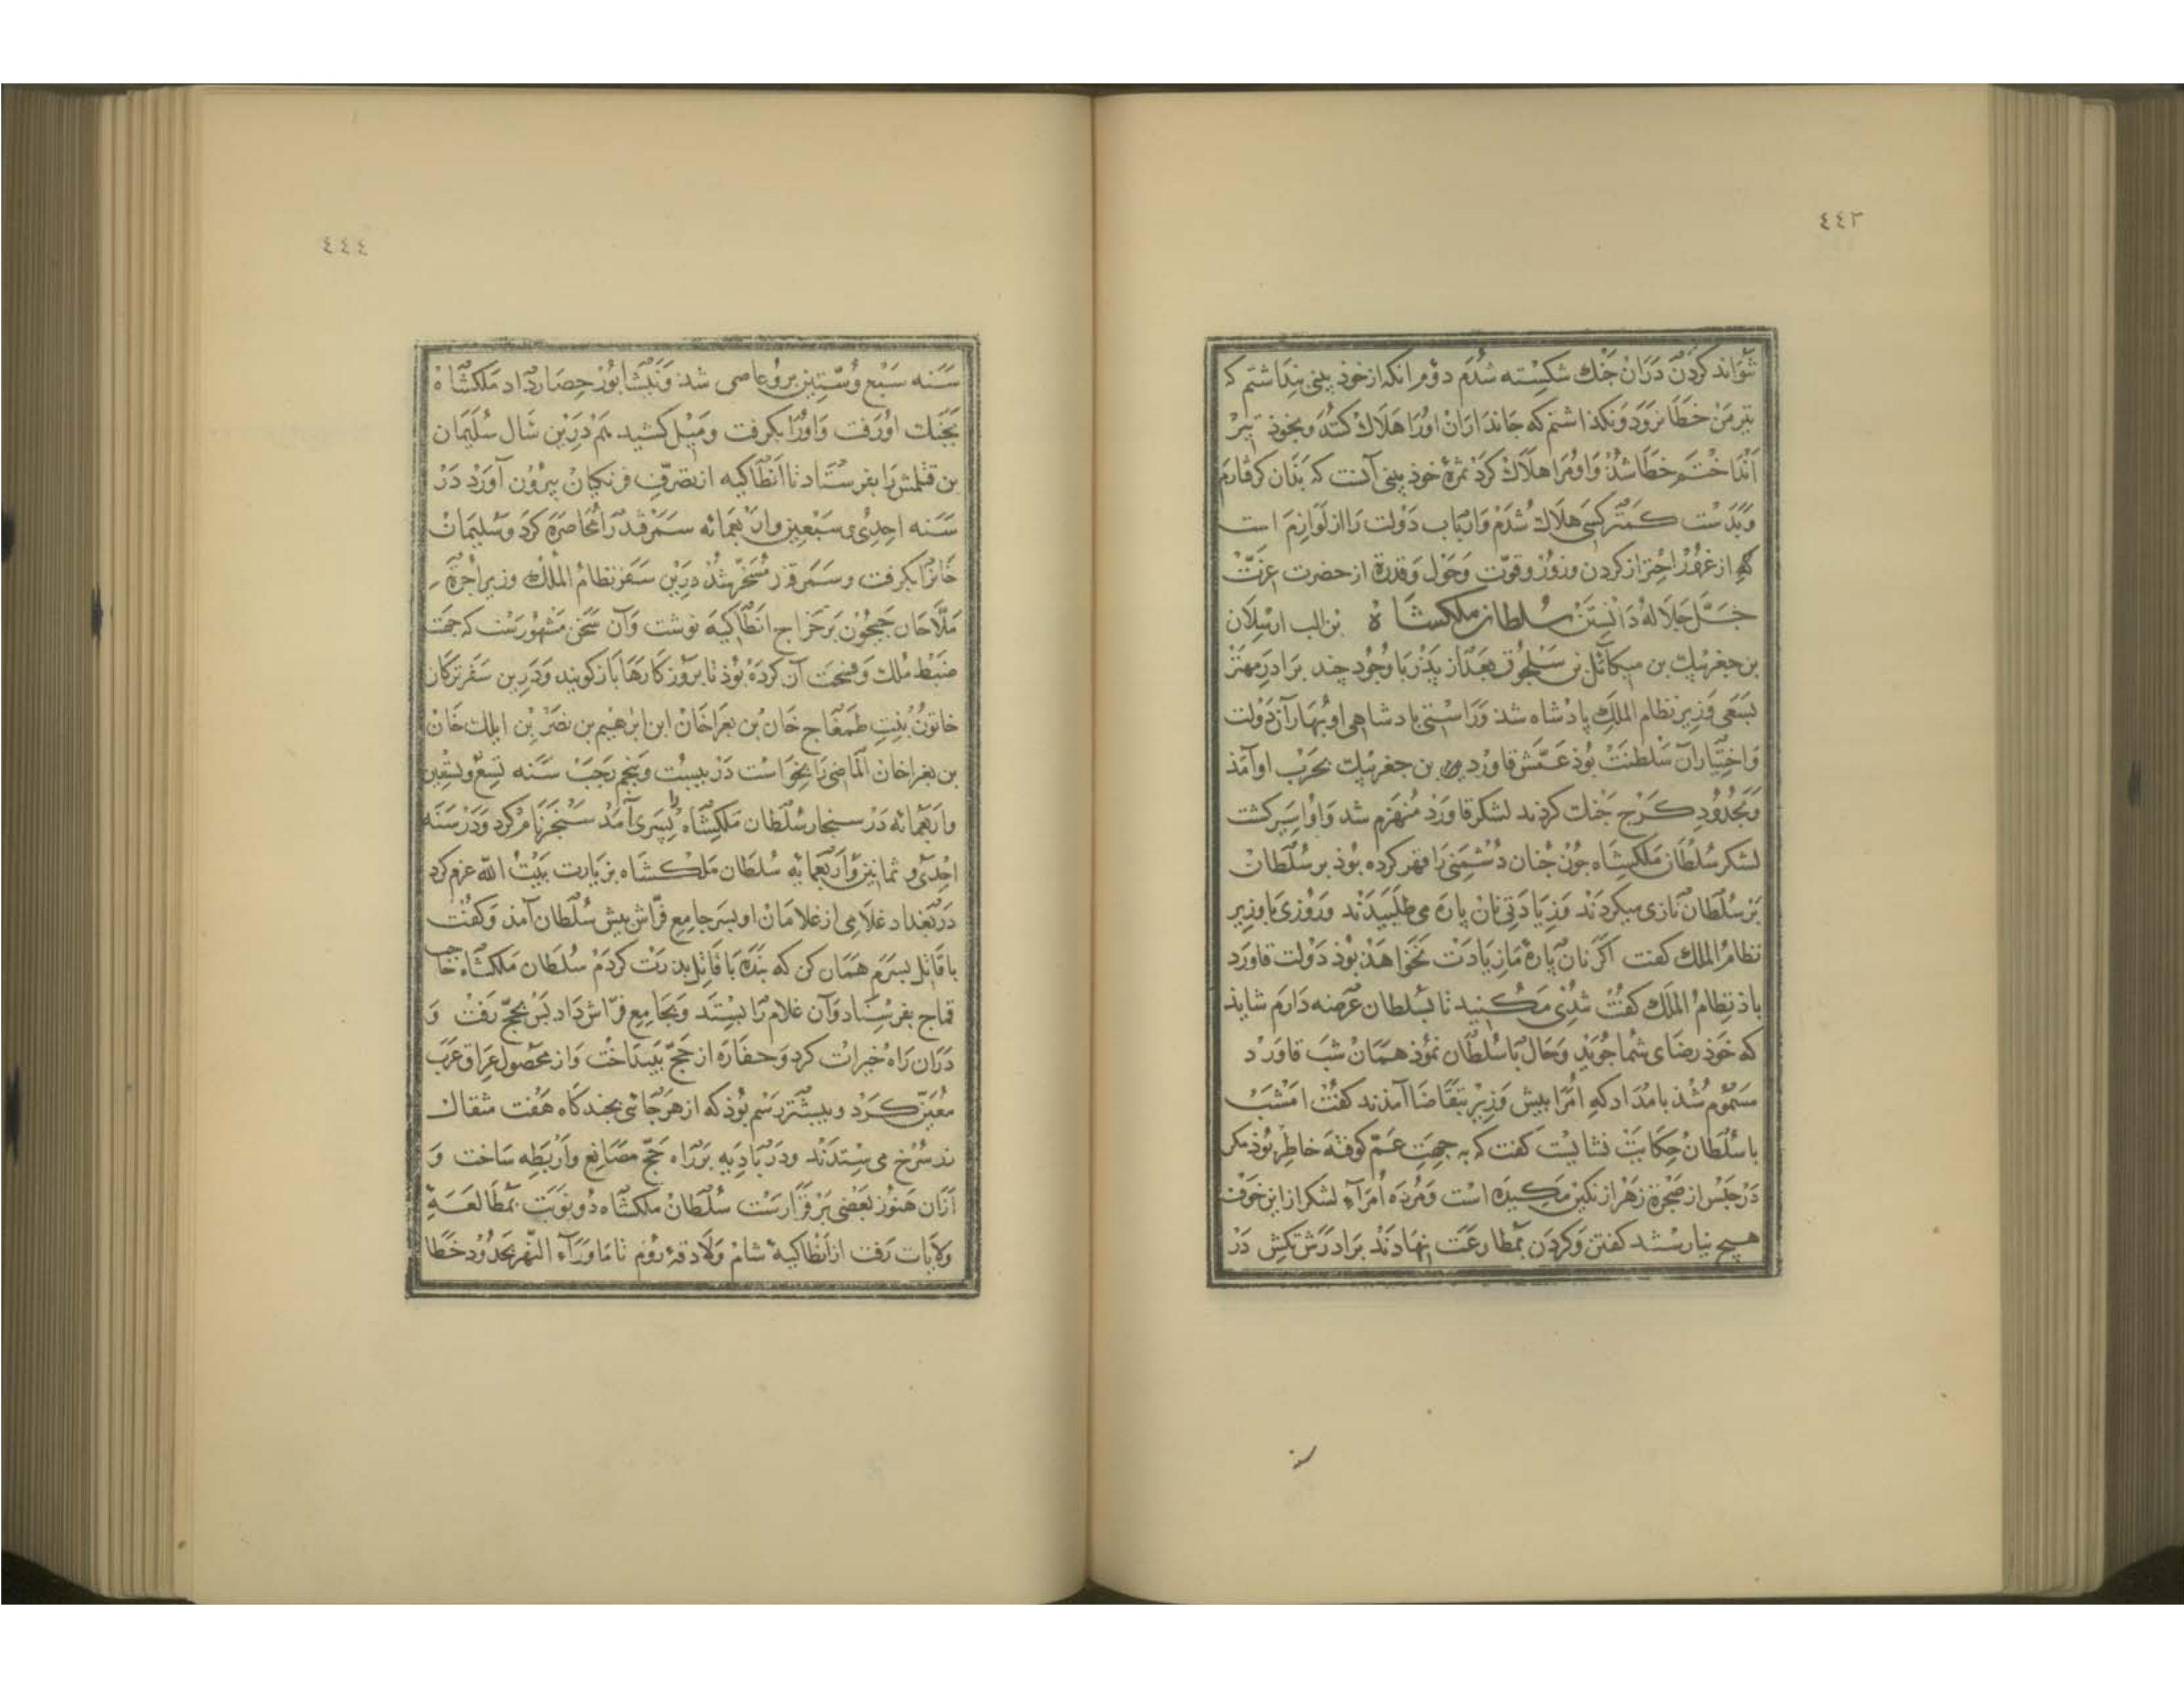 ٤٤٣
شواند کردن دران جنك شکسته شدم دوم انکه از خوذ بینی بنداشتم که
تیر من خطا نرود و نکذاشتم که جانداران اورا هلاك کنند و بخوذ تیر
انداختم خطا شذ و او مرا هلاك کرد ثمرهٔ خوذ بینی آنست که بذان کرفتارم
و بدست کمتر کسی هلاك شدم و ارباب دولت را از لوازم است
که از غرور احتراز کردن و زور و قوّت و حول و قدرة از حضرت عزّت
جلّ جلاله دانستن سلطان ملکشاه بن الب ارسلان
بن جغربیك بن میکائل بن سلجوق بعد از پذر با وجود چند برادر مهتر
بسعی وزیر نظام الملك پادشاه شذ و راستی پادشاهی او بهار آن دولت
و اختیار آن سلطنت بوذ عمّش قاورد بن جغربیك بحرب او آمذ
و بحدود کرج جنك کردند لشکر قاورد منهزم شد و او اسیر کشت
لشکر سلطان ملکشاه چون چنان دشمنی را قهر کرده بوذ بر سلطان
بر سلطان نازی میکردند و زیادتی نان پاره می طلبیدند و روزی با وزیر
نظام الملك کفت اکر نان پارهٔ ما زیادت نخواهذ بوذ دولت قاورد
باذ نظام الملك کفت تندی مکنید تا بسلطان عرضه دارم شاید
که خوذ رضای شما جوید و حال با سلطان نموذ همان شب قاورد
مسموم شذ بامداد که امرا بیش وزیر بتقاضا آمذند کفت امشب
با سلطان حکایت نشایست کفت که به جهت عمّ کوفته خاطر بوذ مکر
در حبس از ضجرة زهر از نکین مکیده است و مرده امرآء لشکر از این خوف
هیچ نیارستند کفتن و کردن بمطاوعت نهادند برادرش تکش در
سنه
٤٤٤
سنه سبع و ستین برو عاصی شذ و بنشابور حصار داد ملکشاه
بجنك او رفت و اورا بکرفت و میل کشید هم درین سال سلیمان
بن قتلمش را بفرستاد تا انطاکیه از تصرّف فرنکیان بیرون آورد در
سنه احدی و سبعین و اربعمائه سمرقند را محاصره کرد و سلیمان
خانرا بکرفت و سمرقند مسخّر شذ درین سفر نظام الملك وزیر اجرة
ملّاحان جیحون بر خراج انطاکیه نوشت و آن سخن مشهورست که جهت
ضبط ملك و فسحت آن کرده بوذ تا بروزکارها باز کویند و درین سفر ترکان
خاتون بنت طمغاج خان بن بغراخان ابن ابرهیم بن نصر بن ایلك خان
بن بغراخان الماضی را بخواست در بیست و پنجم رجب سنه تسع و سبعین
و اربعمائه در سنجار سلطان ملکشاه را پسری آمد سنجر نام کرد و در سنه
احدی و ثمانین و اربعمایه سلطان ملکشاه بزیارت بیت الله عزم کرد
در بغداد غلامی از غلامان او بسر جامع فرّاش بیش سلطان آمذ و کفت
با قاتل بسرم همان کن که بنده با قاتل بدرت کردم سلطان ملکشاه حاجب
قماج بفرستاد و آن غلام را بستد و بجامع فرّاش داد بس بحجّ رفت و
دران راه خیرات کرد و خفاره از حجّ بینداخت و از محصول عراق عرب
معیّن کرد و بیشتر رسم بوذ که از هر حاجی بچند کاه هفت مثقال
زر سرخ می ستدند و در بادیه بر راه حجّ مصانع و اربطه ساخت و
ازان هنوز بعضی بر قرارست سلطان ملکشاه دو نوبت بمطالعهٔ
ولایات رفت از انطاکیهٔ شام و لاذقهٔ روم تا ماوراء النّهر بحدود خطا